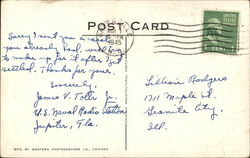 POST CARD
1945
Sorry I sent you a card
you already had. will try
to make up for it after I get
settled. Thanks for yours.
Sincerely,
James V. Toltz Jr.
U.S. Naval Radio Station
Jupiter, Fla.
Lillian Rodgers
1711 Maple St.
Granite City
Ill.
MFD. BY WESTERN PHOTOGRAVURE CO., CHICAGO